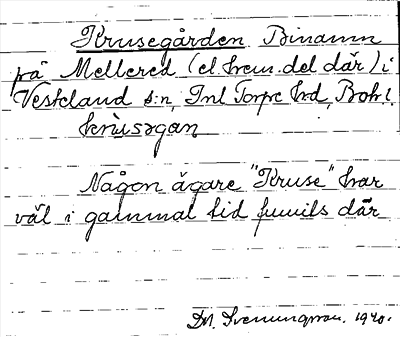 Krusegården Binamn
på Mellered (el. hem. del där) i
Vesteland s:n, Inl Torpe hd, Boh l.
krùsəgan
Någon ägare "Kruse" har
väl i gammal tid funnits där
D.A. Svenungsson. 1940.